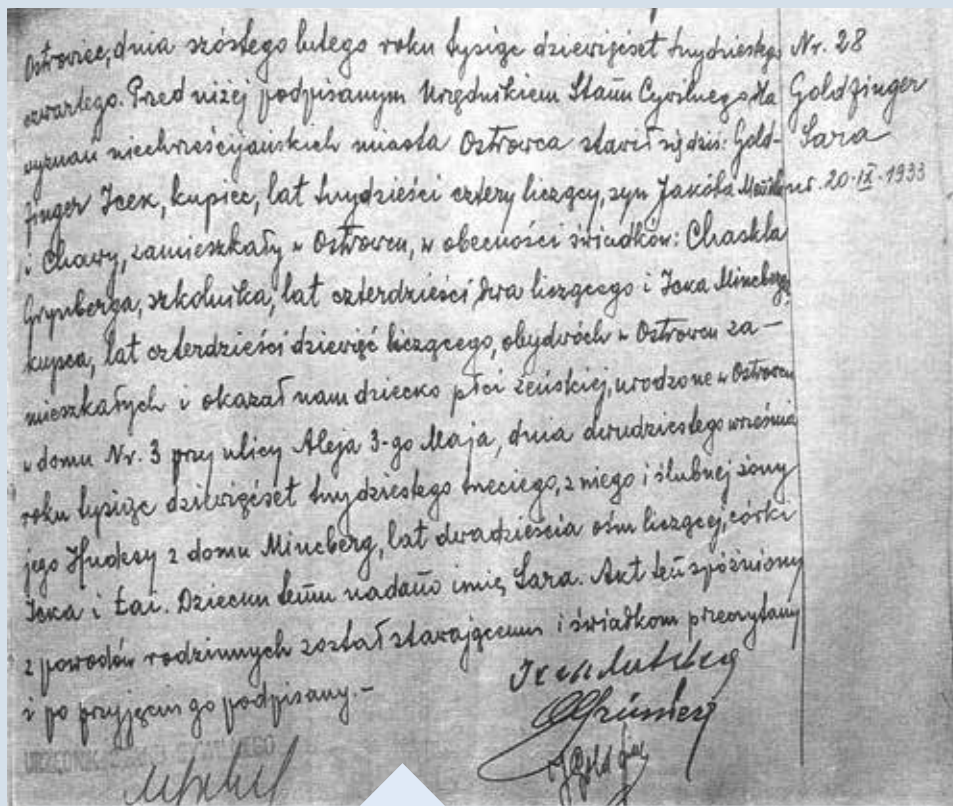 Ostrowiec, dnia szóstego lutego roku tysiąc dziewięćset trzydziestego
czwartego. Przed niżej podpisanym Urzędnikiem Stanu Cywilnego dla
wyznań niechrześcijańskich miasta Ostrowca stawił się dziś: Gold-
finger Icek, kupiec, lat trzydzieści cztery liczący, syn Jakóba
i Chawy, zamieszkały w Ostrowcu, w obecności świadków: Chaskla
Grynberga, szkolnika, lat czterdzieści dwa liczącego i Icka Mincberga
kupca, lat czterdzieści dziewięć liczącego, obydwóch w Ostrowcu za-
mieszkałych i okazał nam dziecko płci żeńskiej, urodzone w Ostrowcu
w domu Nr. 3 przy ulicy Aleja 3-go Maja, dnia dwudziestego września
roku tysiąc dziewięćset trzydziestego trzeciego, z niego i ślubnej żony
jego Hudesy z domu Mincberg, lat dwadzieścia ośm liczącej, córki
Icka i Łai. Dziecku temu nadano imię Sara. Akt ten spóźniony
z powodów rodzinnych został stawającemu i świadkom przeczytany
i po przyjęciu go podpisany.-
Nr. 28
Goldfinger
Sara
ur. 20-IX-1933
URZĘDNIK STANU CYWILNEGO